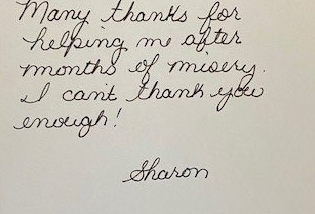 Many thanks for
helping me after
months of misery.
I can't thank you
enough!
Sharon